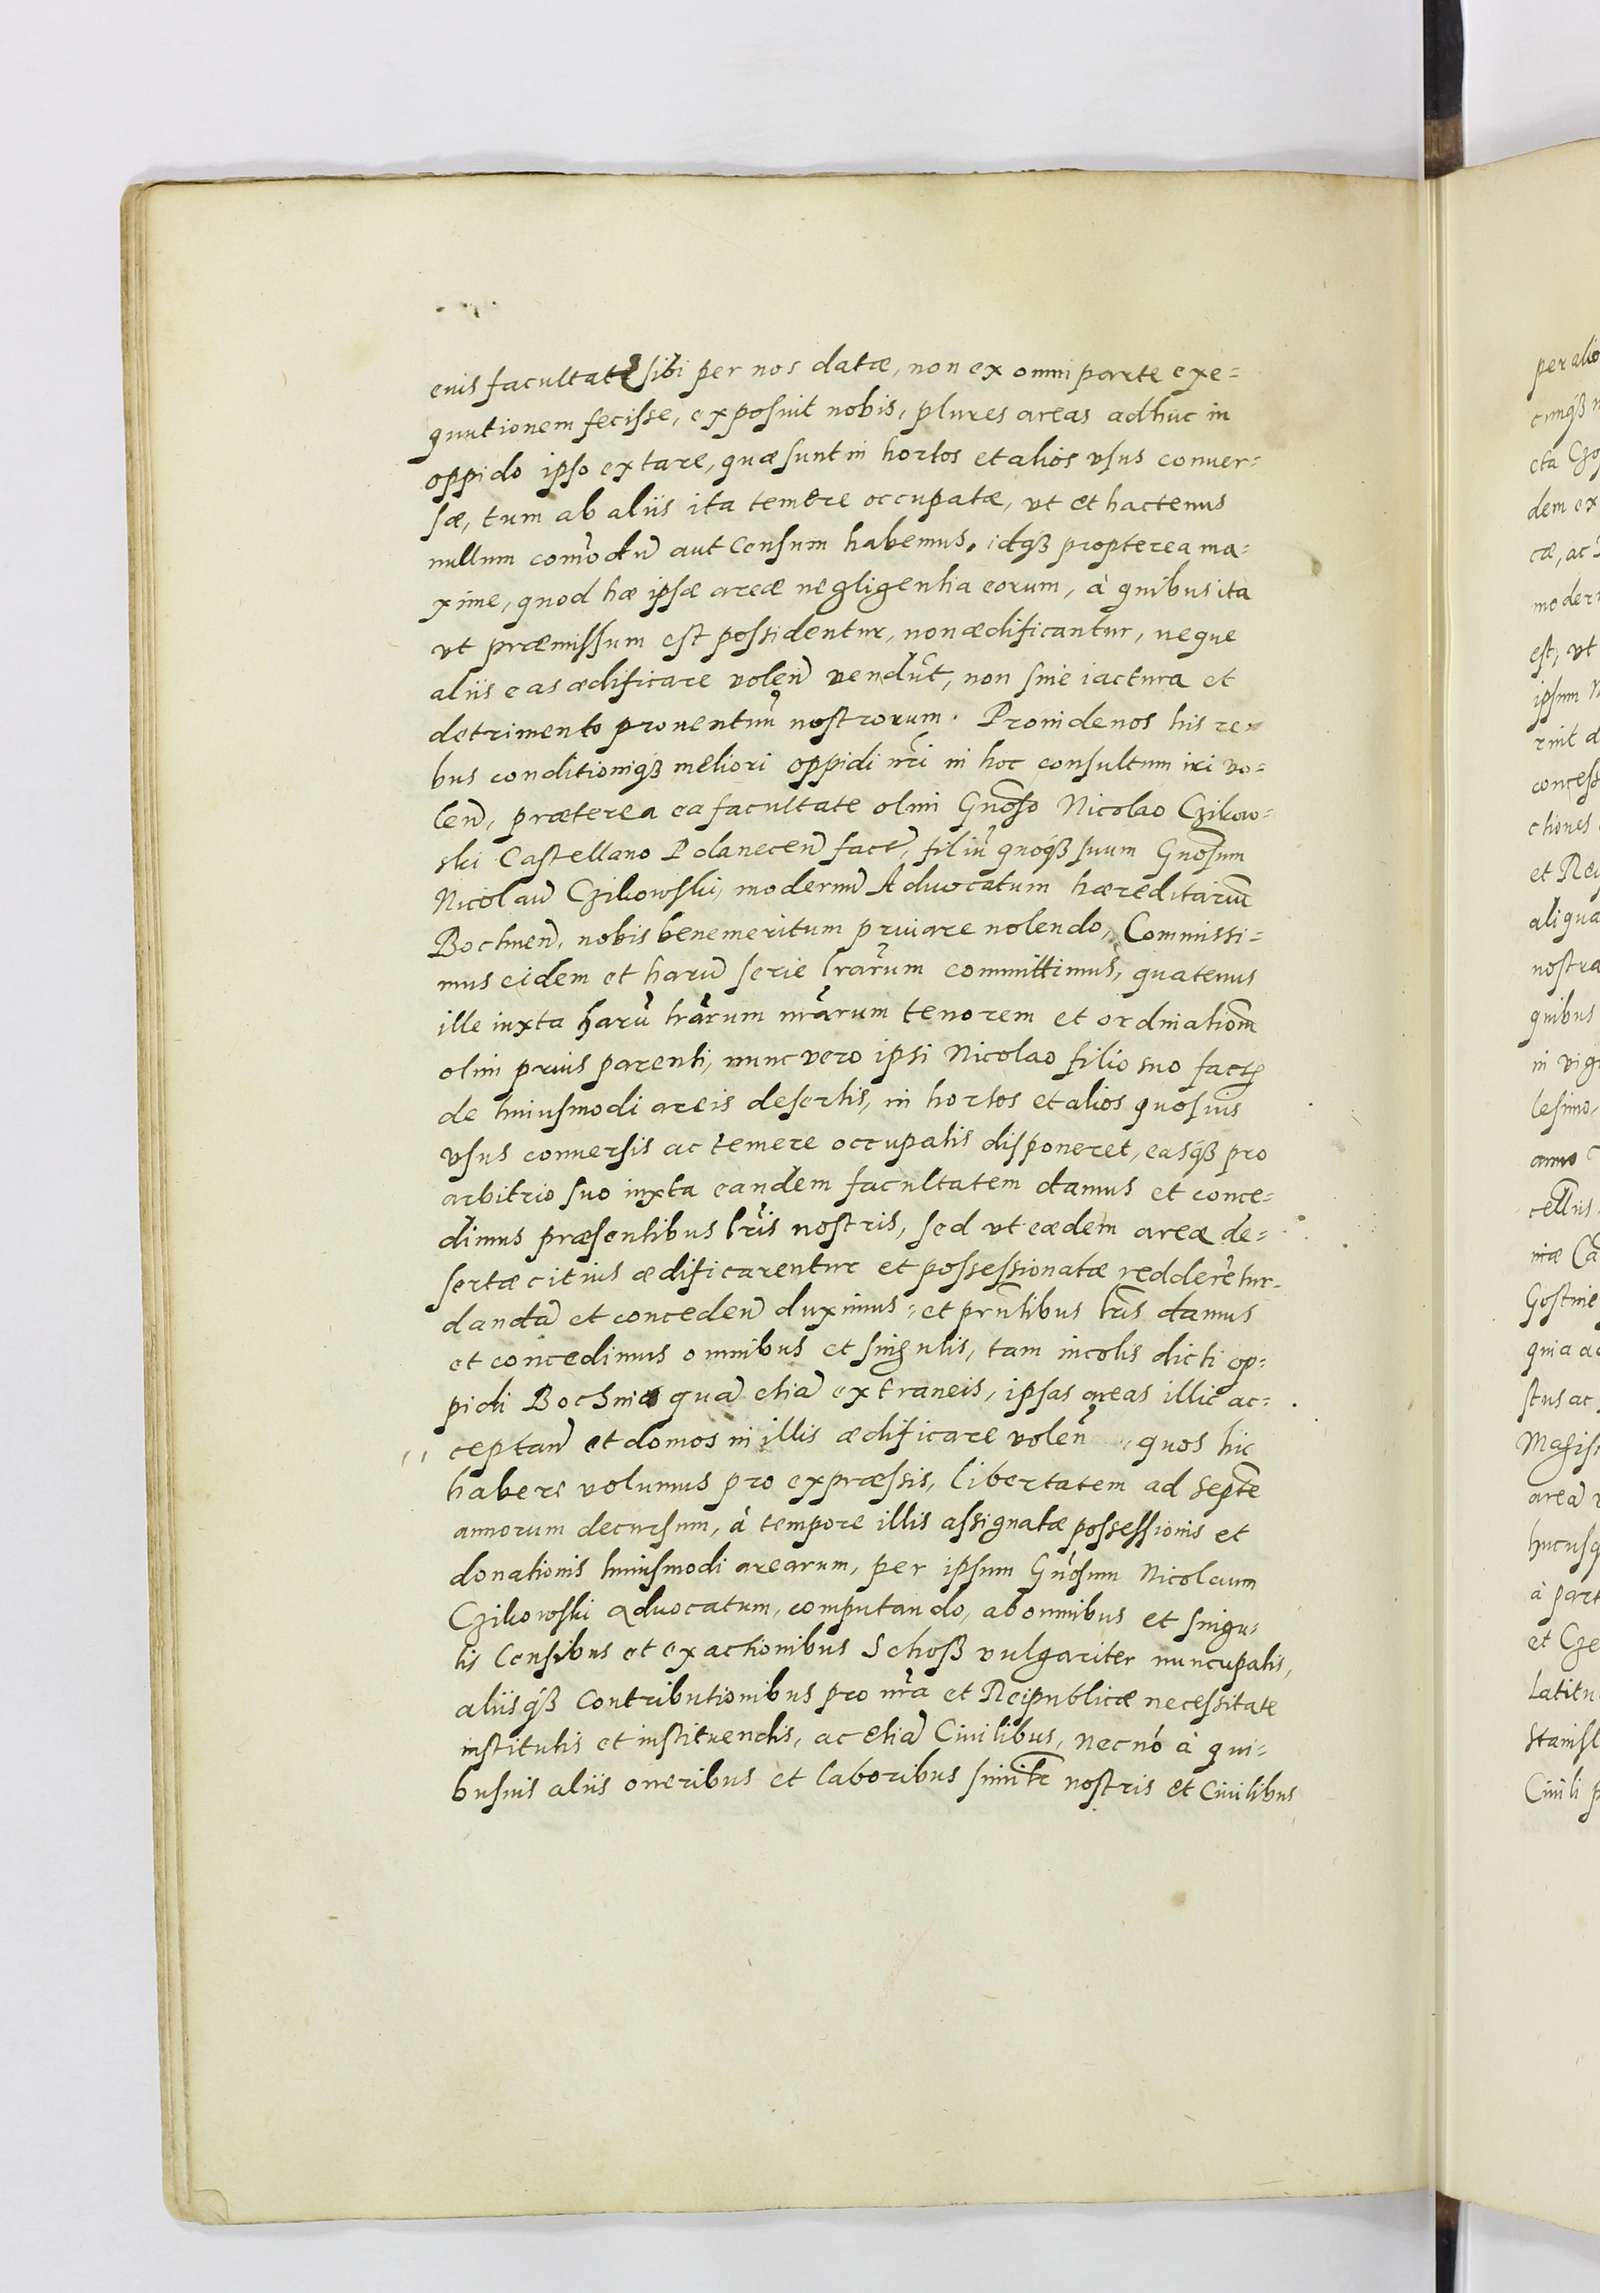 euis facultatẽ sibi per nos datæ, non ex omni parte exe=
quutionem fecisse, exposuit nobis, plures areas adhuc in
oppido ipso extare, quæ sunt in hortos et alios vsus conuer=
sæ, tum ab aliis ita temere occupatæ, vt et hactenus
nullum com̃odũ aut Censum habemus. idq3 propterea ma=
xime, quod hæ ipsæ areæ negligentia eorum, à quibus ita
vt præmissum est possidentur, non ædificantur, neque
aliis eas ædificare volen̄ vendũt, non sine iactura et
detrimento prouentuũ nostrorum. Prouide nos his re=
bus conditioniq3 meliori oppidi nr̃i in hoc consultum iri vo=
len̄, præterea ea facultate olim Gñoso Nicolao Czikow=
ski Castellano Polanecen̄ fact̃, filiũ quoq3 suum Gñosum
Nicolaũ Czikowski, modernũ Aduocatum hæreditariũ
Bochnen̄, nobis benemeritum priuare nolendo, Commissi=
mus eidem et harũ serie lr̃arum committimus, quatenus
ille iuxta harũ lr̃arum nr̃arum tenorem et ordinatiom̃
olim prius parenti, nunc vero ipsi Nicolao filio suo fact̃
de huiusmodi areis desertis, in hortos et alios quosuis
vsus conuersis ac temere occupatis disponeret, easq3 pro
arbitrio suo iuxta eandem facultatem damus et conce=
dimus præsentibus lr̃is nostris, sed vt eædem areæ de=
sertæ citius ædificarentur et possessionatæ redderẽtur
dandã et conceden̄ duximus, et pr̃ntibus lr̃is damus
et concedimus omnibus et singulis, tam incolis dicti op=
pidi Bochniæ quã etiã extraneis, ipsas areas illic ac=
ceptan̄ et domos in illis ædificare volen̄ quos hic
habere volumus pro expræssis, libertatem ad septẽ
annorum decursum, à tempore illis assignatæ possessionis et
donationis huiusmodi arearum, per ipsum Gñosum Nicolaum
Czikowski aduocatum, computando, ab omnibus et singu=
lis Censibus et exactionibus Schoß vulgariter nuncupatis,
aliisq3 Contributionibus pro nr̃a et Reipublicæ necessitate
institutis et instituendis, ac etiã Ciuilibus, necnõ à qui=
busuis aliis oneribus et laboribus similr̃ nostris et Ciuilibus